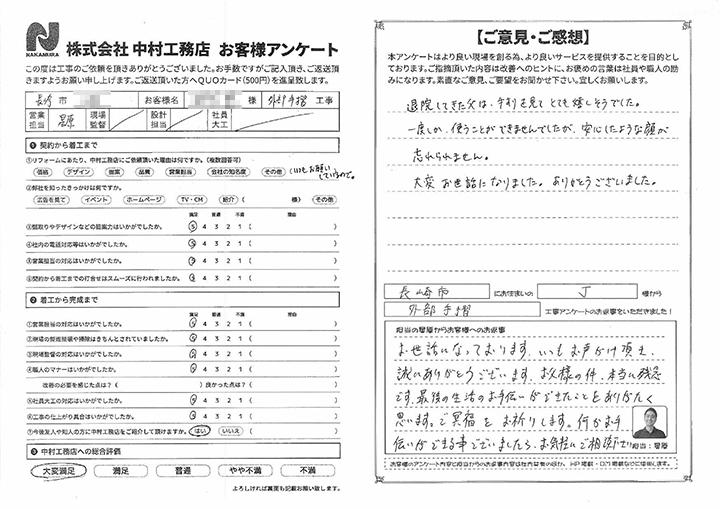 NAKAMURA
株式会社 中村工務店 お客様アンケート
この度は工事のご依頼を頂きありがとうございました。お手数ですがご記入頂き、ご返送頂
きますようお願い申し上げます。ご返送頂いた方へQUOカード(500円)を進呈致します。
長崎 市 お客様名 様 外部手摺 工事
営業担当 現場監督 設計担当 社員大工
❶ 契約から着工まで
①リフォームにあたり、中村工務店にご依頼頂いた理由は何ですか。(複数回答可)
価格 デザイン 提案 品質 営業担当 会社の知名度 その他 (いつもお願いしているので。
②弊社を知ったきっかけは何ですか。
広告を見て イベント ホームページ TV・CM 紹介 ( 様) その他
満足 普通 不満 理由
③間取りやデザインなどの提案力はいかがでしたか。 5 4 3 2 1 ( )
④社内の電話対応等はいかがでしたか。 5 4 3 2 1 ( )
⑤営業担当の対応はいかがでしたか。 5 4 3 2 1 ( )
⑥契約から着工までの打合せはスムーズに行われましたか。 5 4 3 2 1 ( )
❷ 着工から完成まで
満足 普通 不満 理由
①営業担当の対応はいかがでしたか。 5 4 3 2 1 ( )
②現場の整理整頓や掃除はきちんとされていましたか。 5 4 3 2 1 ( )
③現場監督の対応はいかがでしたか。 5 4 3 2 1 ( )
④職人のマナーはいかがでしたか。 5 4 3 2 1 ( )
改善の必要を感じた点は?( )良かった点は?( )
⑤社員大工の対応はいかがでしたか。 5 4 3 2 1 ( )
⑥工事の仕上がり具合はいかがでしたか。 5 4 3 2 1 ( )
⑦今後友人や知人の方に中村工務店をご紹介して頂けますか。 はい いいえ ( )
❸ 中村工務店への総合評価
大変満足 満足 普通 やや不満 不満
よろしければ裏面も記載お願い致します。
【ご意見・ご感想】
本アンケートはより良い現場を創る為、より良いサービスを提供することを目的とし
ております。ご指摘頂いた内容は改善へのヒントに、お褒めの言葉は社員や職人の励
みになります。素直なご意見、ご要望をお聞かせ下さい。宜しくお願いします。
退院してきた父は、手すりを見てとても嬉しそうでした。
一度しか、使うことができませんでしたが、安心したような顔が
忘れられません。
大変お世話になりました。ありがとうございました。
長崎市 にお住まいの J 様から
外部手摺 工事アンケートのお返事をいただきました!
担当の からお客様へのお返事
お世話になっております。いつもお声かけ頂き、
誠にありがとうございます。お父様の件、本当に残念
です。最後の生活のお手伝いができたことをありがたく
思います。ご冥福をお祈りします。何かお手
伝いができる事でございましたら、お気軽にご相談下さい
担当: